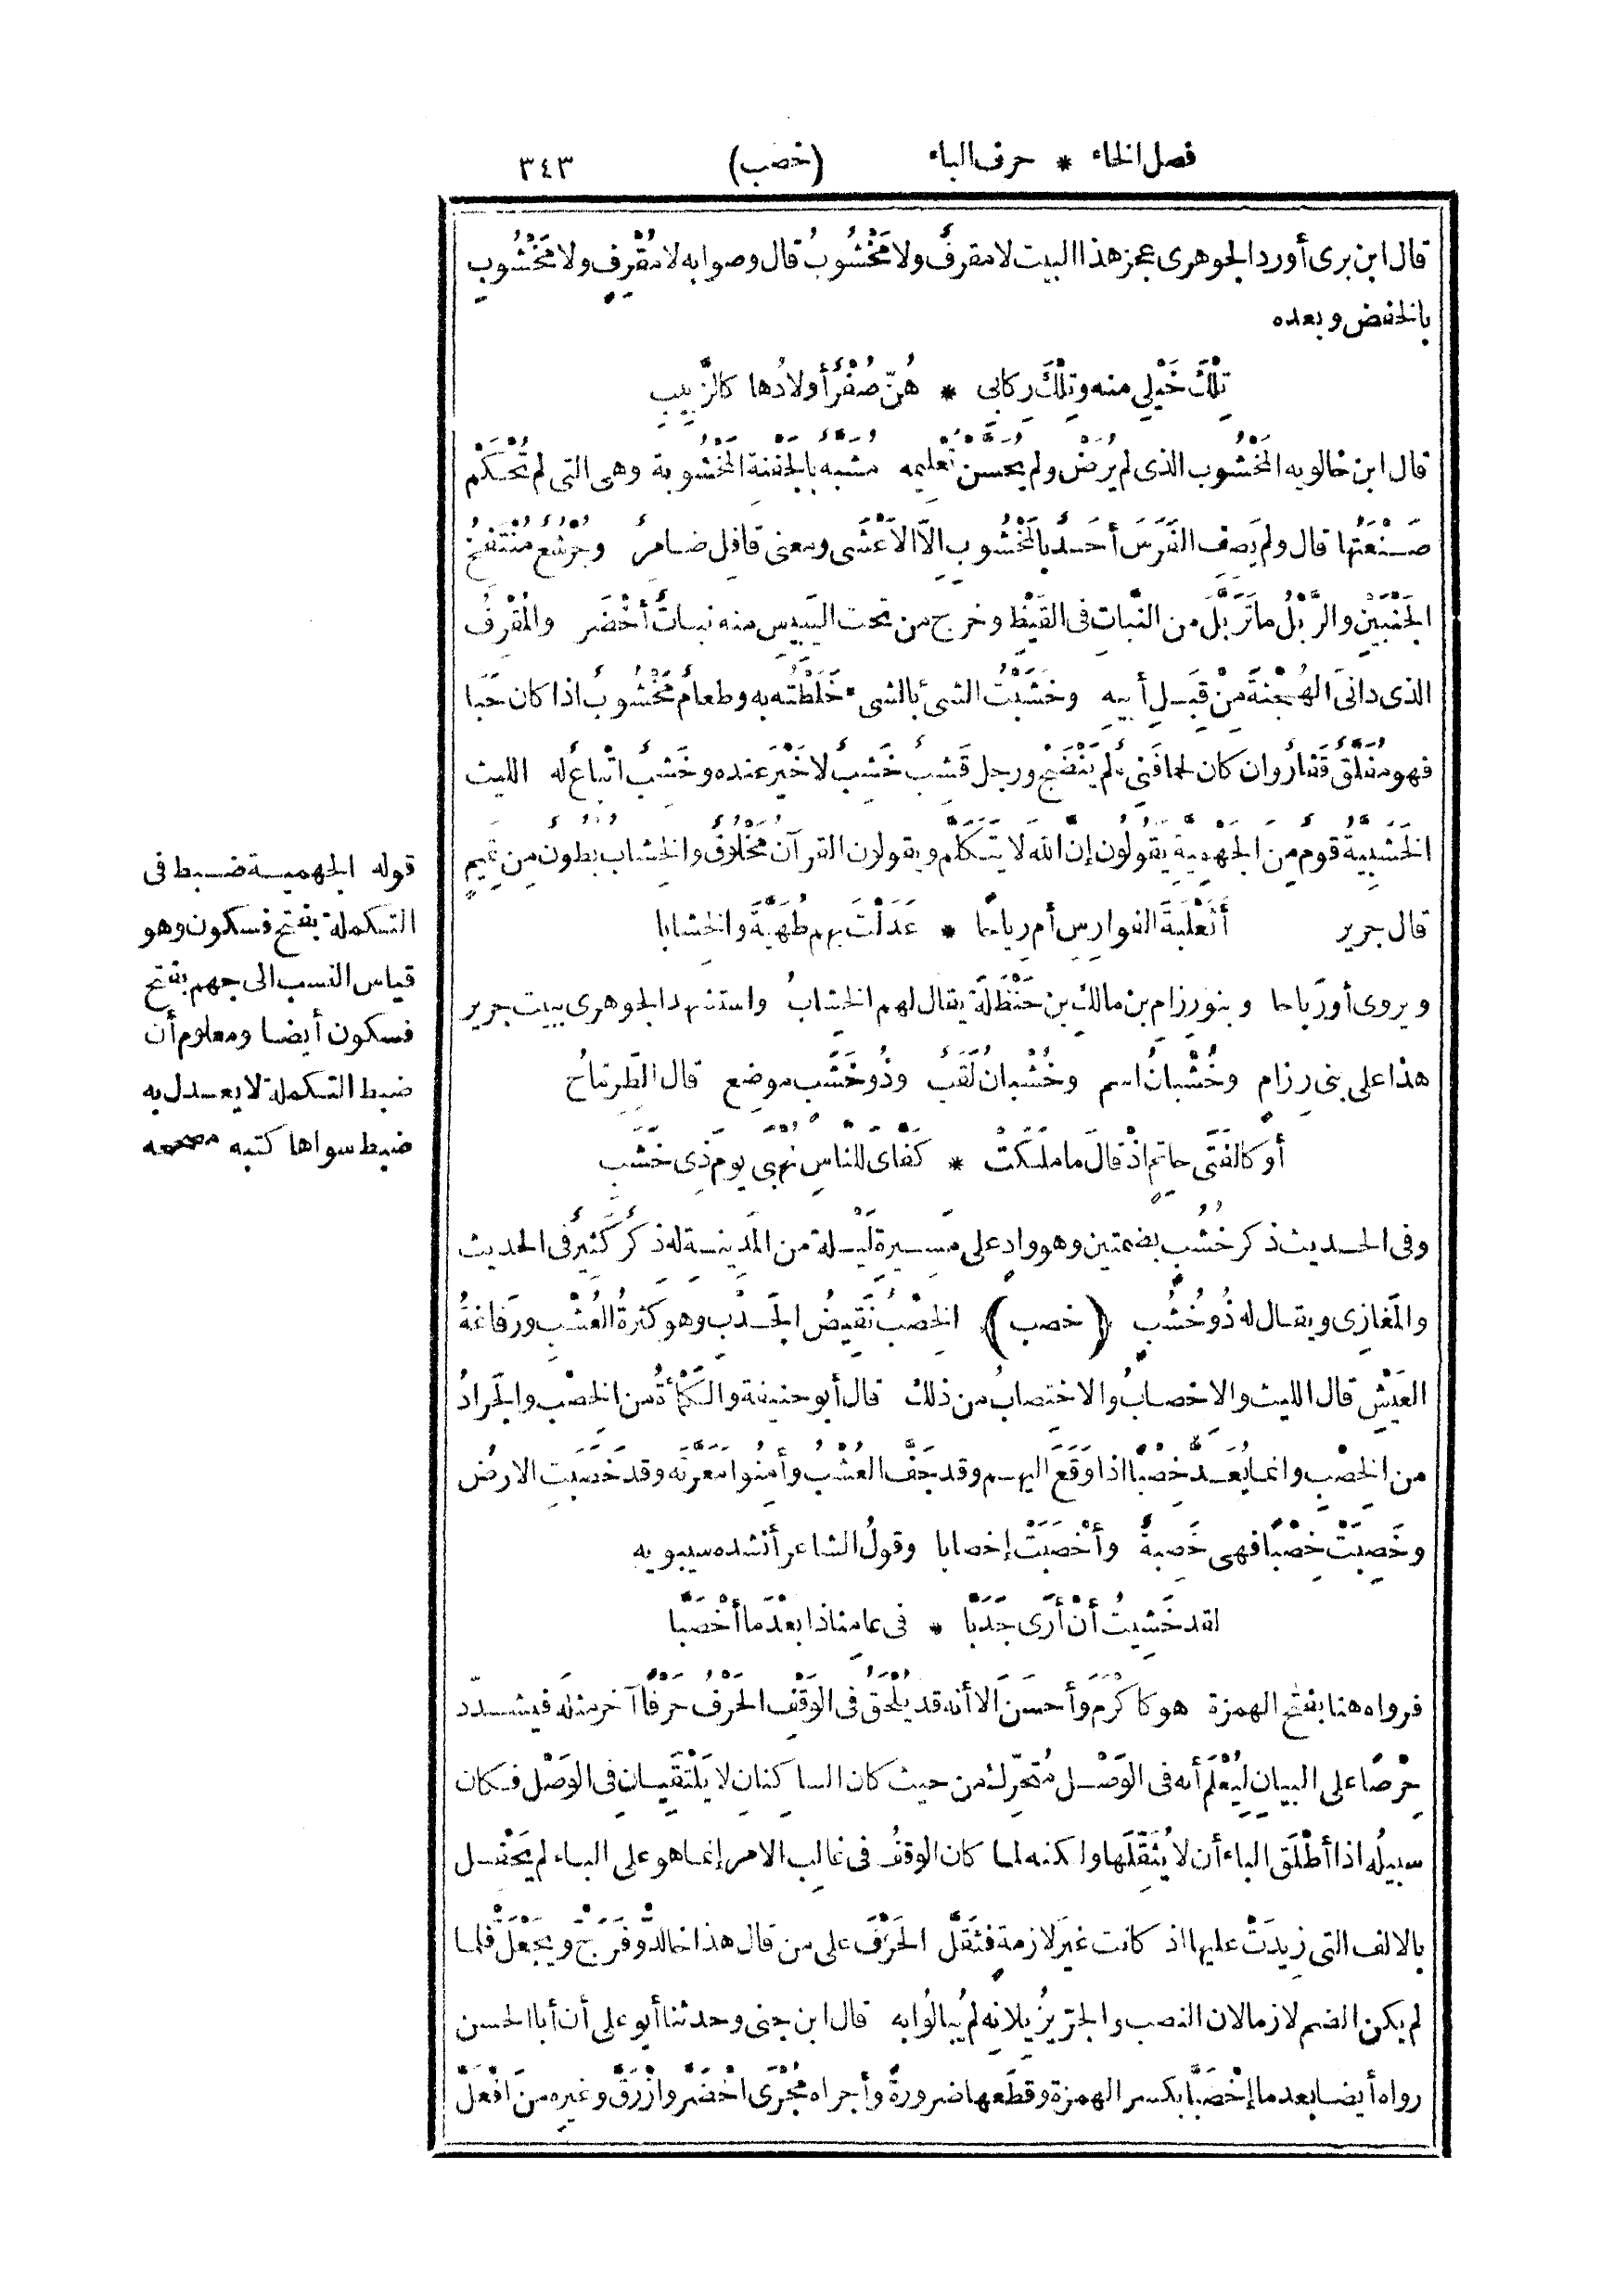 فصل الخاء * حرف الباء (خصب) ٣٤٣
قال ابن برى أورد الجوهرى عجز هذا البيت لا مقرفٌ ولا مَخْشُوبُ قال وصوابه لا مُقْرِفٍ ولا مَخْشُوبِ
بالخفض وبعده
تِلْكَ خَيْلِى منه وتِلْكَ رِكابى * هُنّ صُفْرٌ أَولادُها كالزَّبِيبِ
قال ابن خالويه المَخْشُوب الذى لم يُرَضْ ولم يُحَسَّنْ تَعْلِيمُه مُشَبَّه بالجَفْنةِ المَخْشُوبة وهى التى لم تُحْكَمْ
صَنْعَتُها قال ولم يَصِفِ الفَرَسَ أَحَدٌ بالمَخْشُوبِ الَّا الاَعْشَى ومعنى قافِل ضامِرٌ وجُرْشُعٌ مُنْتَفِخُ
الجَنْبَيْنِ والرَّبْلُ ما تَرَبَّلَ من النَّباتِ فى القَيْظِ وخرج من تحت اليَبِيسِ منه نباتٌ أَخْضَر والمُقْرِفُ
الذى دانَى الهُجْنةَ مِنْ قِبَلِ أَبيهِ وخَشَبْتُ الشئَ بالشئ خَلَطْتُه به وطعامٌ مَخْشُوبٌ اذا كان حَبّا
فهو مُفَلَّقٌ قَفارٌ وان كان لحما فَنِىءٌ لم يَنْضَجْ ورجل قَشِبٌ خَشِبٌ لا خَيْرَ عنده وخَشِبٌ اتْباعٌ له الليث
الخَشَبِيَّةُ قومٌ مِن الجَهْمِيةِ يَقُولُون إِنّ اللّه لا يَتَكَلَّم ويقولون القرآن مَخْلُوقٌ والخِشاب بُطونٌ مِن تَمِيمٍ
قال جرير أَثَعْلَبةَ الفوارِسِ أَم رِياحًا * عَدَلْتَ بِهِم طُهَيّةَ والخِشابا
ويروى أَو رَباحا وبنو رِزامِ بن مالكِ بن حَنْظَلَة يقال لهم الخِشابُ واستشهد الجوهرى ببيت جرير
هذا على بنى رِزام وخُشْبانُ اسم وخُشْبانُ لَقَبٌ وذُو خَشَب موضع قال الطِّرِمّاحُ
أَو كالفَتَى حاتِمٍ اذْ قالَ ما مَلَكَتْ * كَفّاىَ للنّاسِ نُهْبَى يومَ ذِى خَشَبِ
وفى الحديث ذكر خُشُبٍ بضمتين وهو وادٍ على مَسِيرة لَيْلة من المَدِينة له ذكرٌ كَثِيرٌ فى الحديث
والمَغازِى ويقال له ذُو خُشُبٍ (خصب) الخِصْبُ نَقِيضُ الجَدْبِ وهو كَثرةُ العُشْبِ ورَفاغةُ
العَيْشِ قال الليث والاِخصابُ والاختِصابُ من ذلك قال أَبو حنيفة والكَمْأَةُ من الخِصْبِ والجَرادُ
من الخِصْبِ وانما يُعَدُّ خِصْبًا اذا وَقَعَ اليهم وقد جَفَّ العُشْبُ وأَمِنُوا مَعَرَّتَه وقد خَصَبَتِ الارضُ
وخَصِبَتْ خِصْبًا فهى خَصِبةٌ وأَخْصَبَتْ إخصابا وقولُ الشاعر أَنشده سيبويه
لقد خَشِيتُ أَنْ أَرَى جَدَبّا * فى عامِنا ذا بَعْدَما أَخْصَبّا
فرواه هنا بفتح الهمزة هو كأَكْرَمَ وأَحسَنَ الا أَنه قد يُلْحَقُ فى الوَقْفِ الحَرْفُ حَرْفًا آخر مثلَه فيشدّد
حِرْصًا على البيانِ لِيُعْلَم أَنه فى الوَصْلِ مُتَحَرِّك من حيث كان الساكنانِ لا يَلْتَقِيانِ فى الوَصْل فكان
سبيلُه اذا أَطْلَقَ الباء أَن لا يُثَقِّلَها ولكنه لما كان الوقفُ فى غالِبِ الامر إنما هو على الباء لم يَحْفِل
بالالف التى زِيدَتْ عليها اذ كانت غيرَ لازمةٍ فثَقَّلَ الحَرْفَ على من قال هذا خالدّْ وفَرَجّْ ويَجْعَلّْ فلما
لم يكن الضم لازما لان النصب والجرّ يُزِيلانِه لم يُبالُوا به قال ابن جنى وحدثنا أَبو على أَن أَبا الحسن
رواه أَيضا بعدما إخْصَبّا بكسر الهمزة وقطَعها ضرورةً وأَجراه مُجْرَى اخْضَرَّ وازْرَقَّ وغيرِه من افْعَلَّ
قوله الجهمية ضبط فى
التكملة بفتح فسكون وهو
قياس النسب الى جهم بفتح
فسكون أيضا ومعلوم أن
ضبط التكملة لا يعدل به
ضبط سواها كتبه مصححه